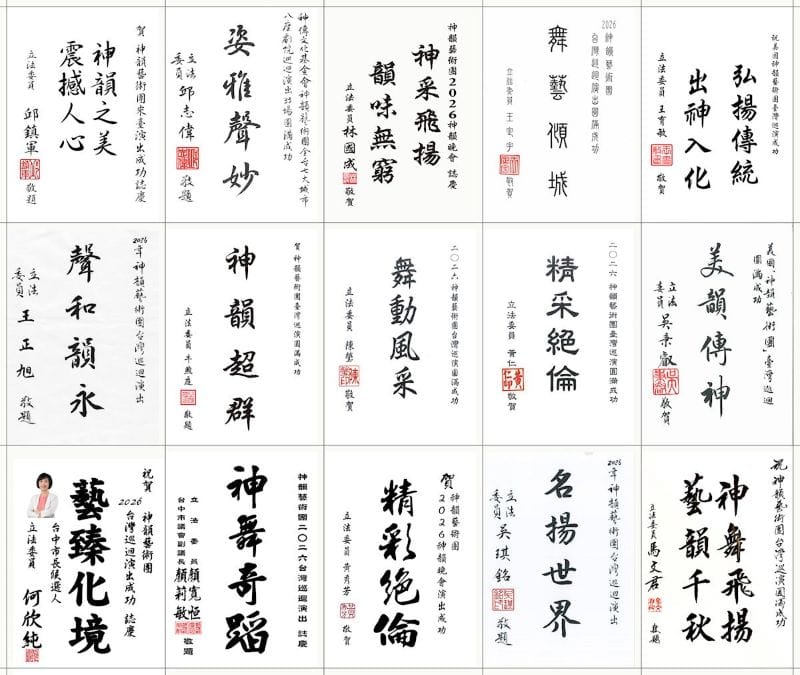 賀 神韻藝術團來臺演出成功誌慶
神韻之美
震撼人心
立法委員 邱鎮軍 敬題
神傳文化基金會神韻藝術團全台七大城市
八座劇院巡迴演出35場圓滿成功
姿雅聲妙
立法
委員 邱志偉 敬題
神韻藝術團2026神韻晚會 誌慶
神采飛揚
韻味無窮
立法委員 林國成 敬賀
2026神韻藝術團
台灣巡迴演出圓滿成功
舞藝傾城
立法委員 王定宇 敬賀
祝美國神韻藝術團臺灣巡演成功
弘揚傳統
出神入化
立法委員 王育敏 敬賀
2026年神韻藝術團台灣巡迴演出
聲和韻永
立法
委員 王正旭 敬題
賀 神韻藝術團臺灣巡演圓滿成功
神韻超群
立法委員 牛煦庭 敬題
二〇二六神韻藝術團台灣巡演圓滿成功
舞動風采
立法委員 陳瑩 敬賀
二〇二六 神韻藝術團臺灣巡演圓滿成功
精采絕倫
立法委員 黃仁 敬賀
美國「神韻藝術團」臺灣巡迴
圓滿成功
美韻傳神
立法
委員 吳秉叡 敬賀
祝賀 神韻藝術團
2026台灣巡迴演出成功 誌慶
藝臻化境
台中市長候選人
立法委員 何欣純
神韻藝術團二〇二六台灣巡迴演出 誌慶
神舞奇蹈
立法委員 顏寬恒
台中市議會副議長 顏莉敏 敬題
賀 神韻藝術團
2026神韻晚會演出成功
精彩絕倫
立法委員 黃秀芳 敬賀
2026年神韻藝術團台灣巡迴演出
名揚世界
立法
委員 吳琪銘 敬題
祝神韻藝術團台灣巡演圓滿成功
神舞飛揚
藝韻千秋
立法委員 馬文君 敬題